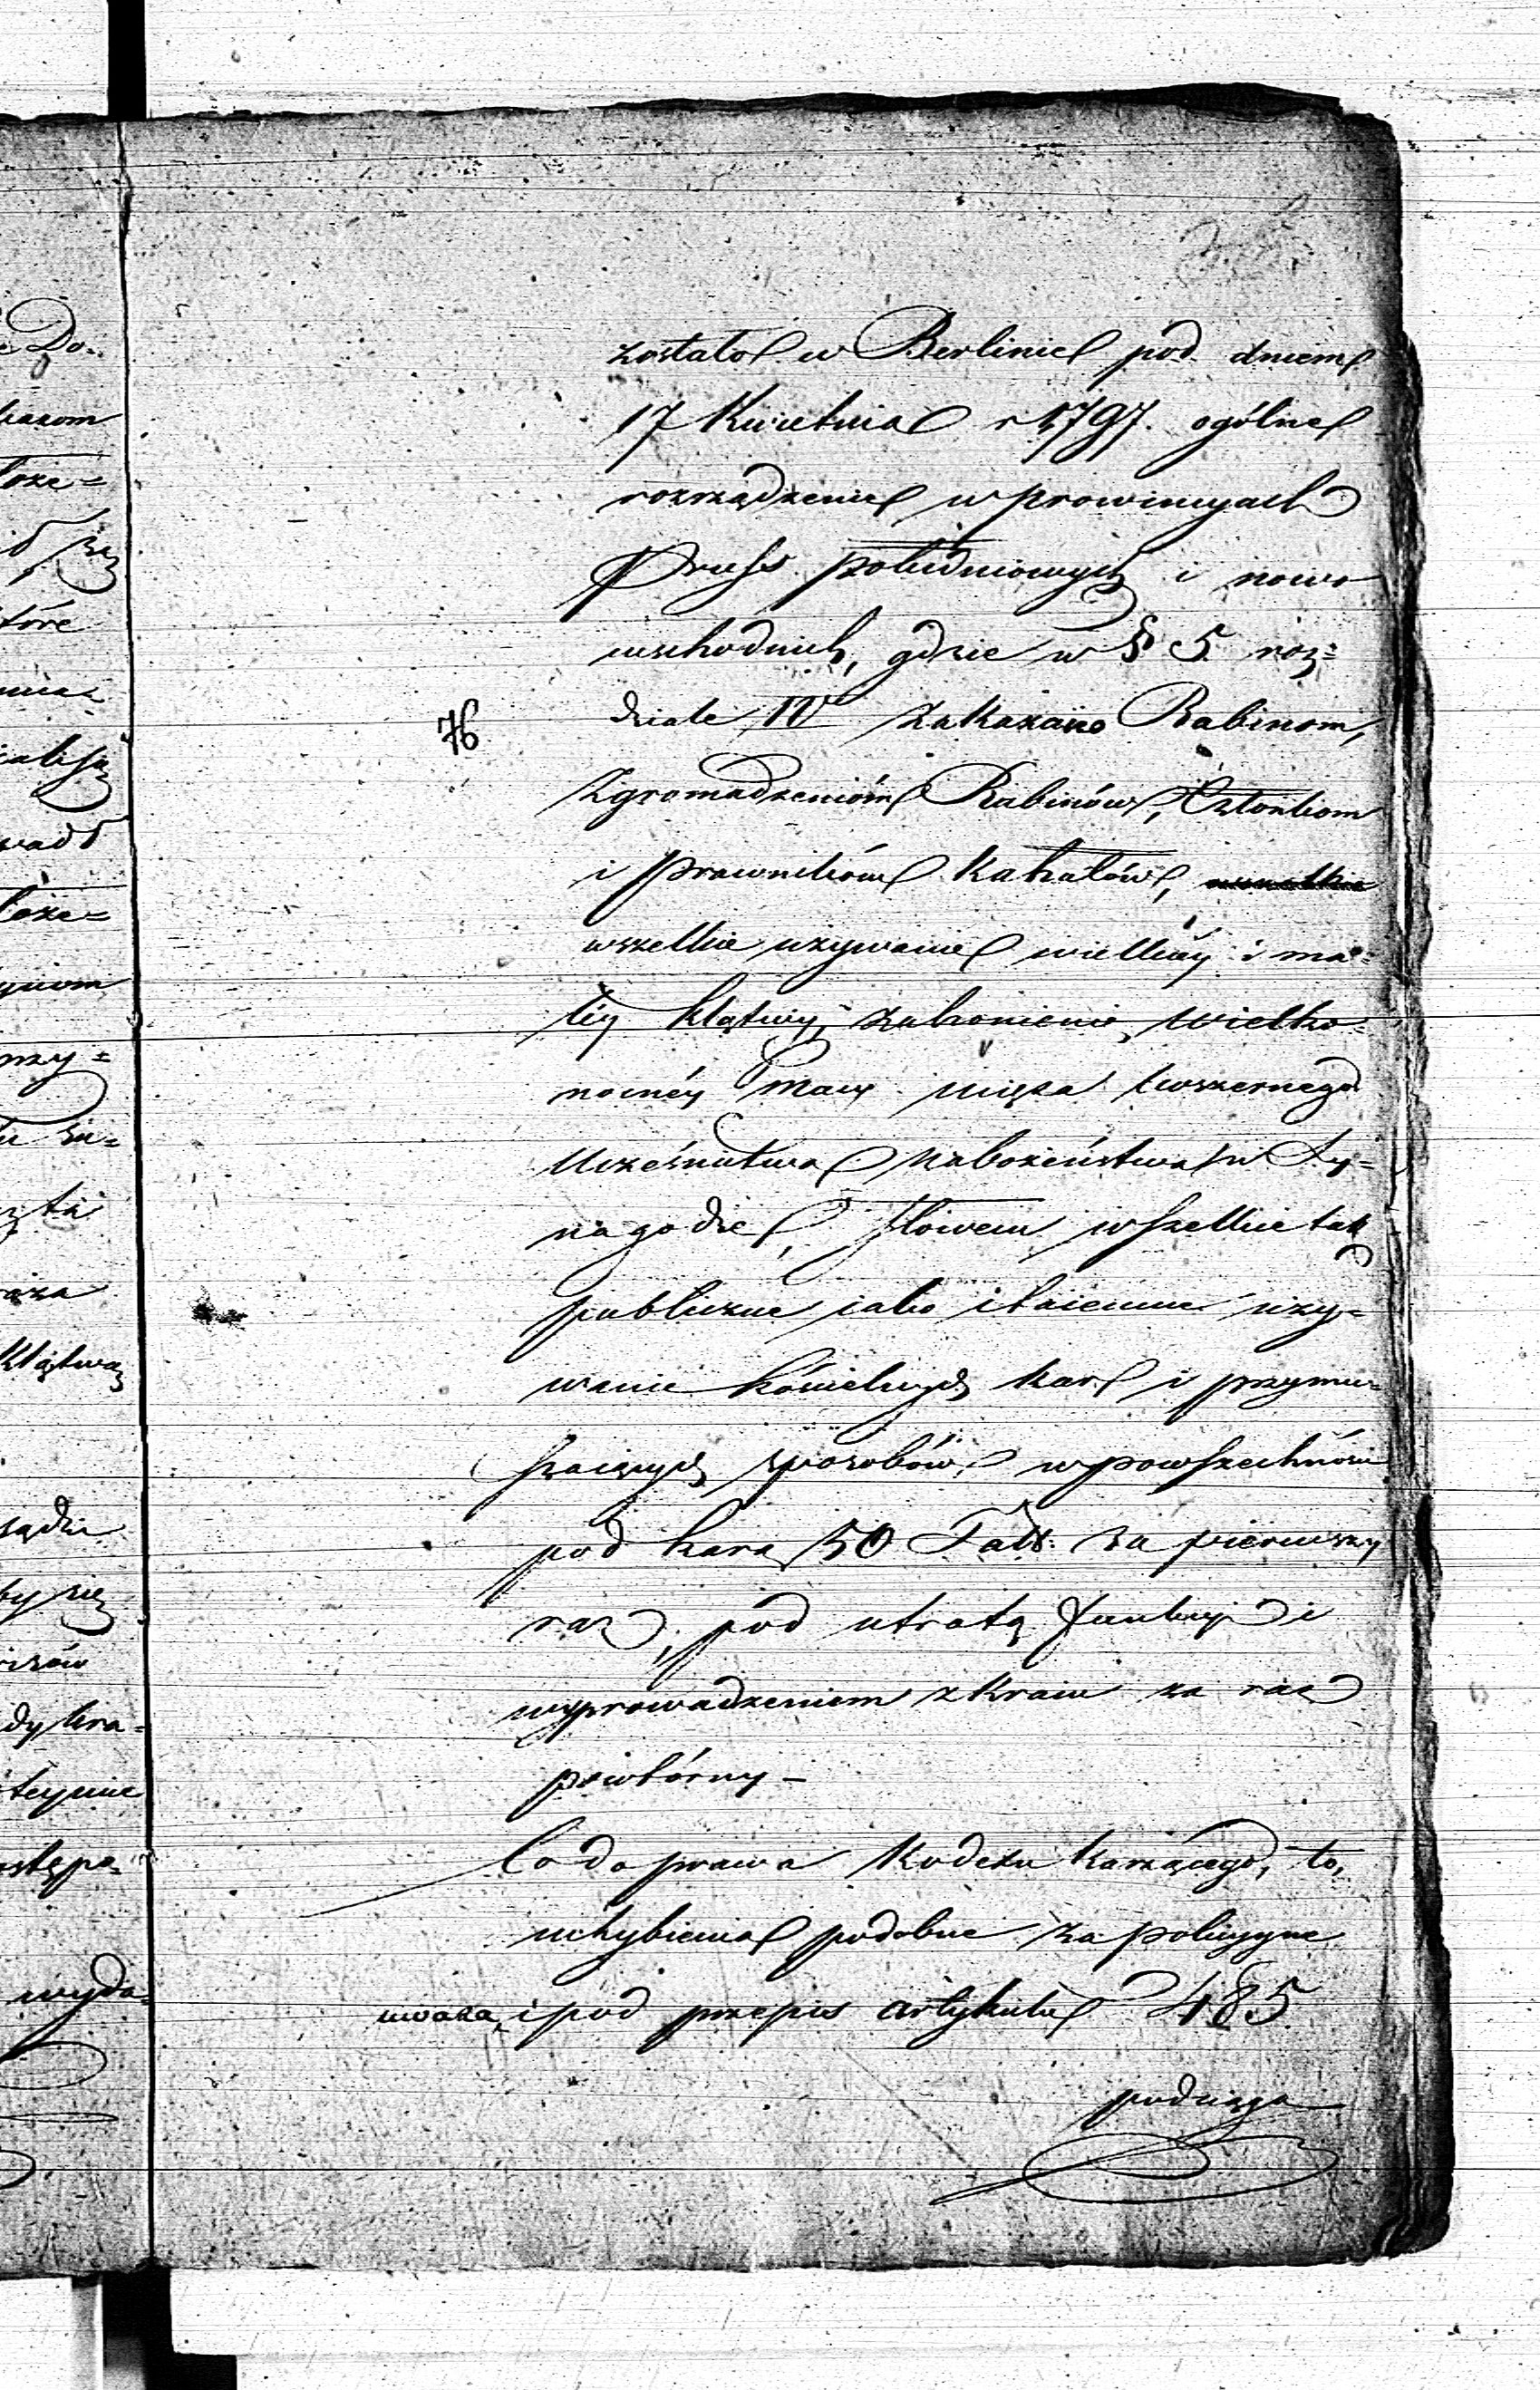 zostało w Berlinie pod dniem
17 Kwietnia r 1797. ogólne
rozrządzenie w prowincyach
Pruss południowych i nowo
wschodnich, gdzie w § 5 roz=
dziale IV zakazano Rabinom,
76
Zgromadzeniom Rabinów, Członkom
i prawnikom Kahałów,
wszelkie używanie wielkiey i ma=
łey klątwy, zabronienie, wielko=
nocnéy Macy mięsa koszernego
Uczesnictwa Nabożeństwa w Sy=
nagodze, słowem wszelkie tak
publiczne iako i taiemne uży=
wanie kościelnych kar i przymu=
szaiących sposobów w powszechności
pod karą 50 Tall: za pierwszy
raz, pod utratą funkcyi i
wyprowadzeniem z Kraiu za raz
powtórny –
Co do prawa Kodexu karzącego, to,
uchybienia podobne za policyyne
uważa, i pod przepis artykułu 485
podciąga
Do=
toze=
się
tóre
wad
toze=
rzy=
za=
Klątwą
by się
dy kra=
stępo=
wyda=